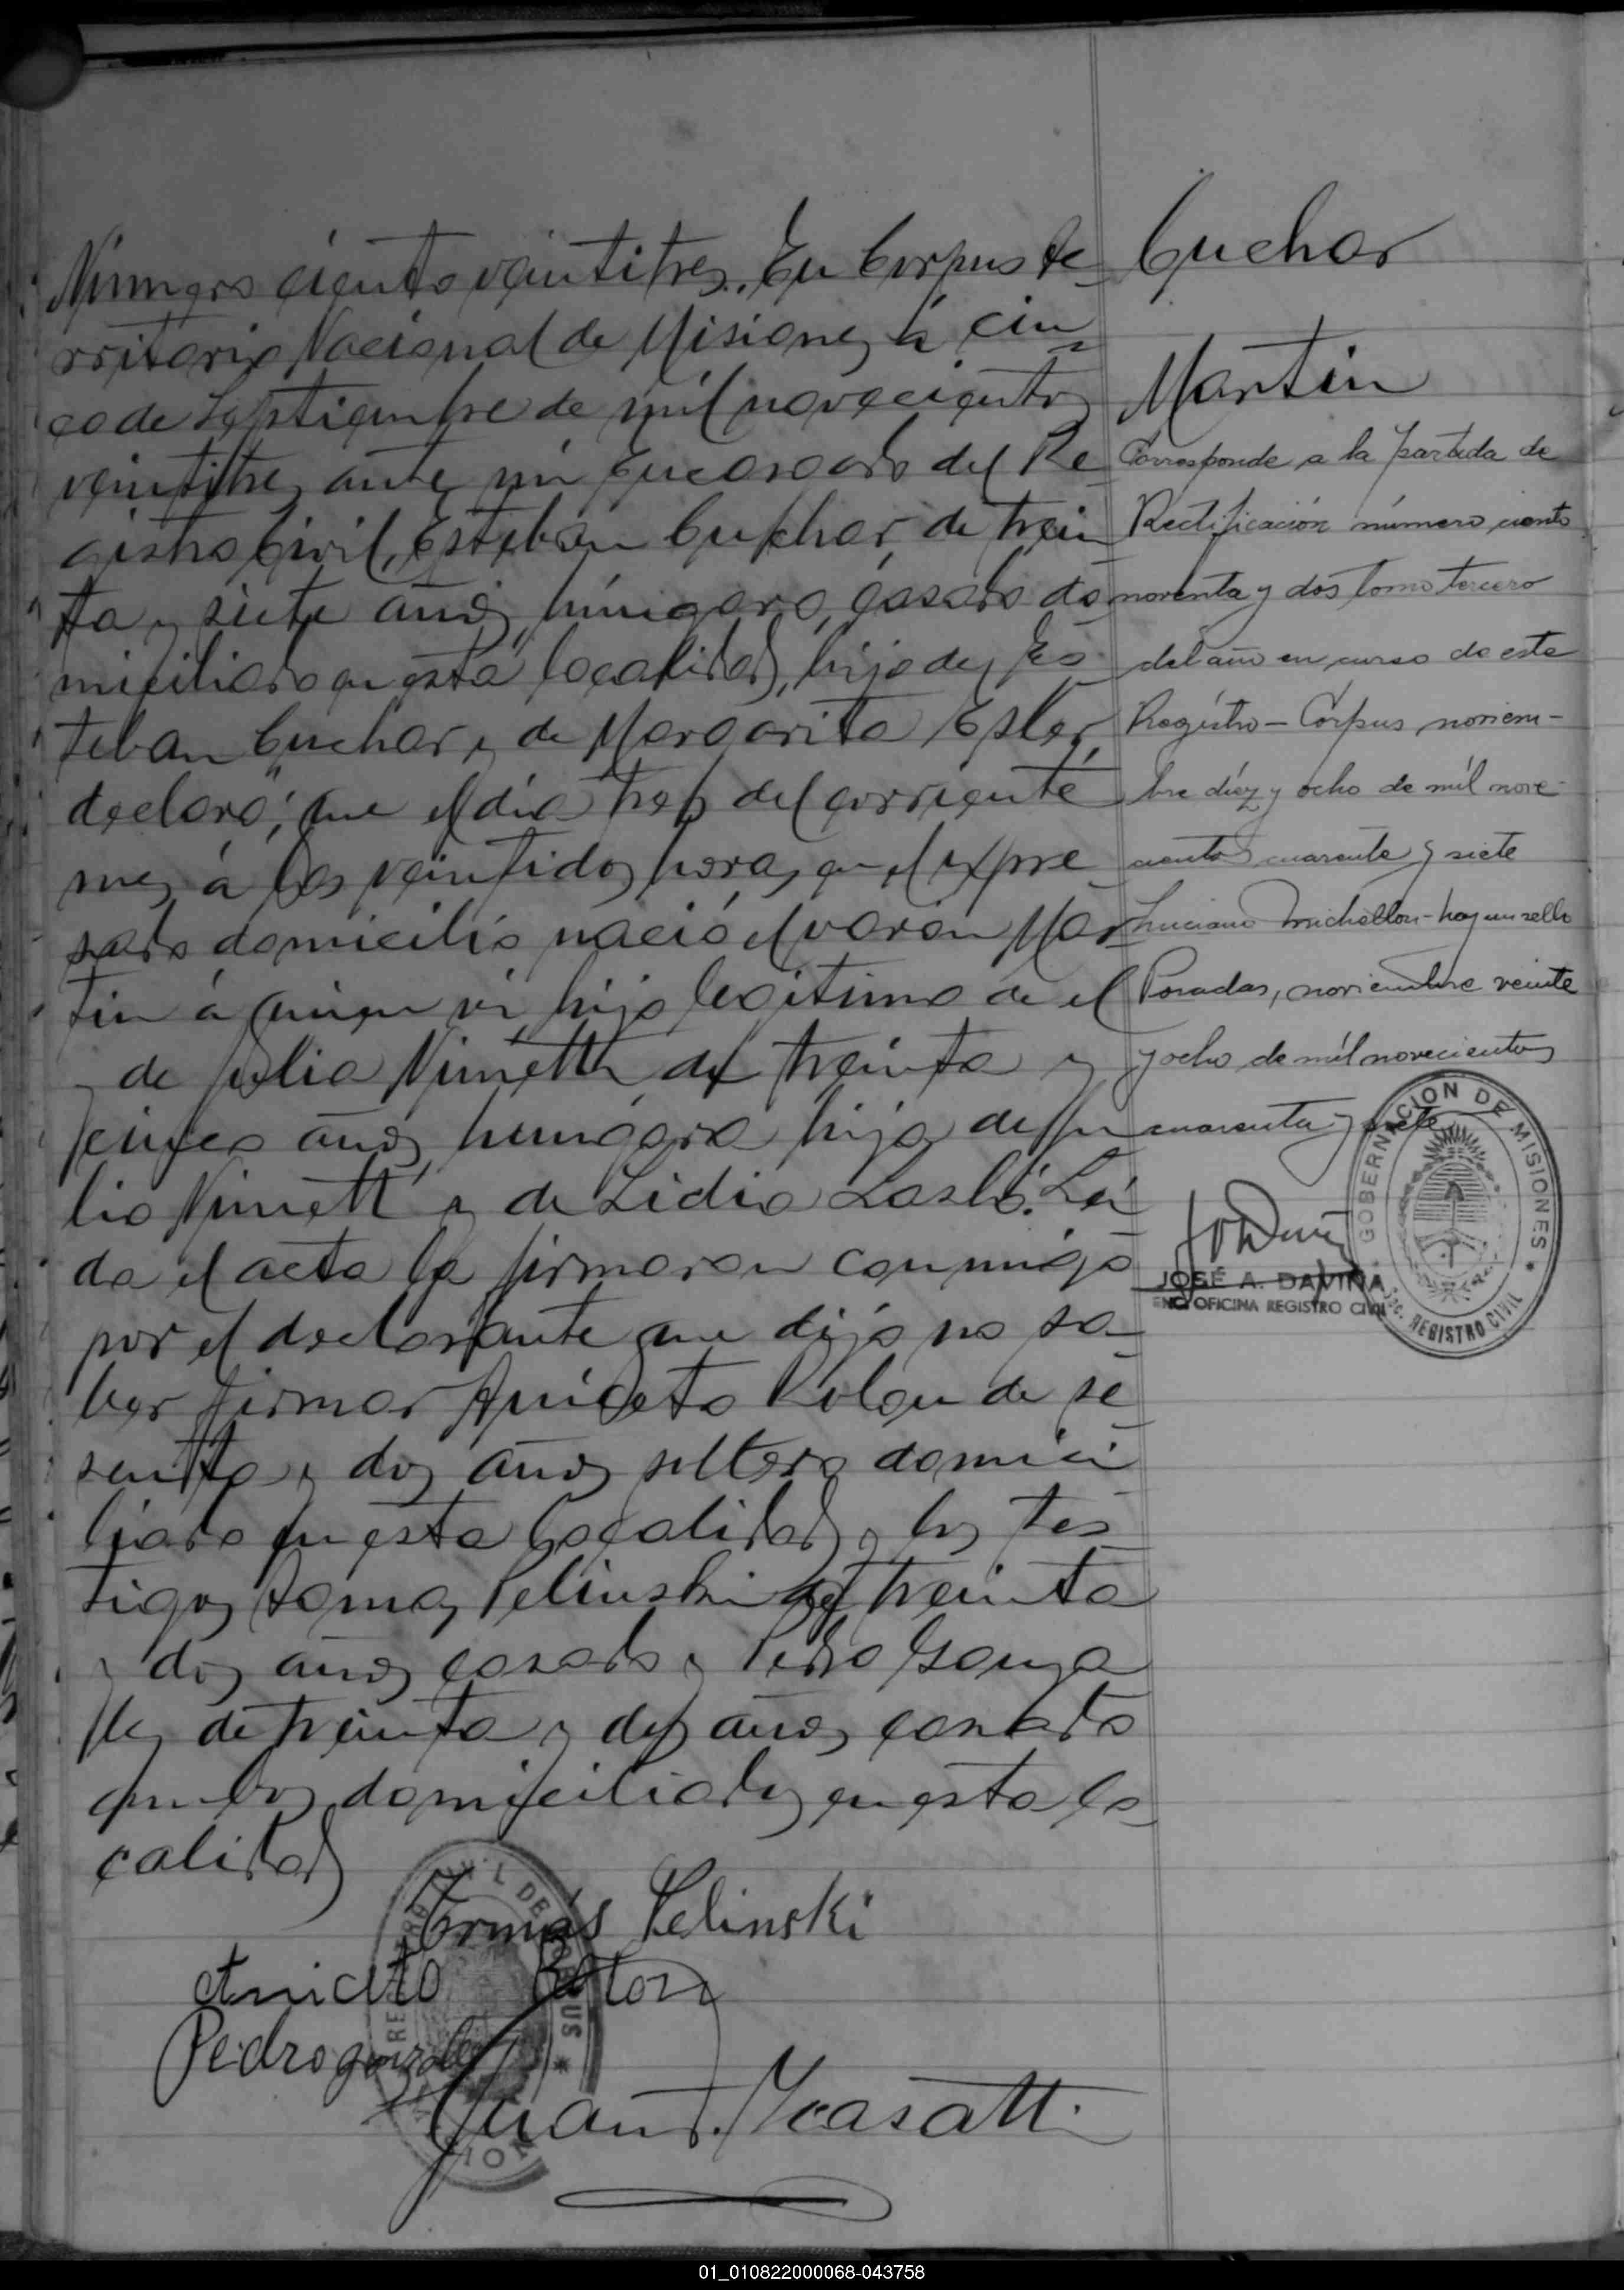 Número ciento veintitres. En Corpus te-
rritorio Nacional de Misiones, á cin-
co de Septiembre de mil novecientos
veintitres, ante mi Encargado del Re-
gistro Civil, Esteban Cuchar, de trein
ta y siete años, húngaro, casado do
miciliado en esta localidad, hijo de Es-
teban Cuchar y de Margarita Esler,
declaró; que el día tres del corriente
mes á las veintidos horas, en el expre
sado domicilio nació el varón Mar-
tin á quien vi, hijo legítimo de el
y de Julia Nimeth de treinta y
cinco años, húngara hija de Ju
lio Nimett y de Lidia Lasló. Leí
da el acta la firmaron conmigo
por el declarante que dijo no sa-
ber firmar Aniceto Rolon de se
senta y dos años soltero domici
liado en esta localidad y los tes-
tigos Tomas Pelinski de treinta
y dos años casado y Pedro Gonza
les de treinta y dos años, casado
ambos domiciliados en esta lo-
calidad
Tomás Pelinski
Aniceto Roton
Pedro gonzalez
Juan J. Icasatti
Cuchar
Martin
Corresponde a la partida de
Rectificación número ciento
noventa y dos tomo tercero
del año en curso de este
Registro - Corpus noviem-
bre diez y ocho de mil nove-
cientos cuarenta y siete
Luciano Michellon - hay un sello
Posadas, noviembre veinte
y ocho de mil novecientos
cuarenta y siete
JOSÉ A. DAVIÑA
ENC. OFICINA REGISTRO CIVIL
GOBERNACION DE MISIONES
SEC. REGISTRO CIVIL
01_010822000068-043758